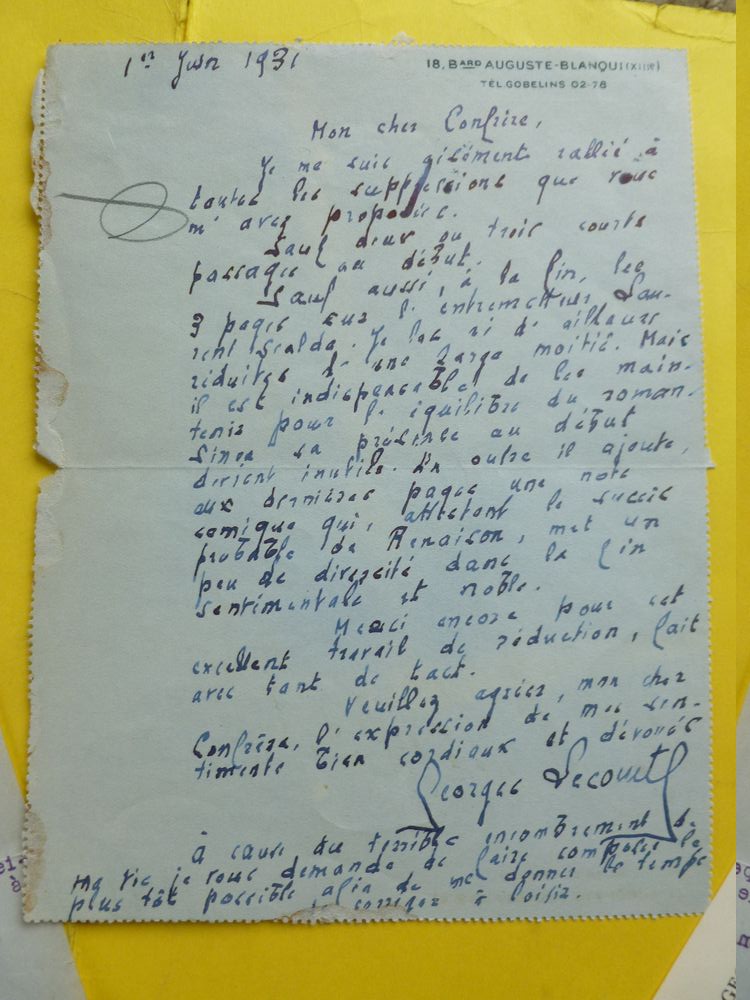 1er Juin 1931
18, BARD AUGUSTE-BLANQUI (XIIIE)
TÉL. GOBELINS 02-78
Mon cher Confrère,
Je me suis aisément rallié à
toutes les suppressions que vous
m'avez proposées.
Sauf deux ou trois courts
passages au début.
Sauf aussi, à la fin, les
3 pages sur l'entremetteur
Je les ai d'ailleurs
réduites d'une large moitié. Mais
il est indispensable de les main-
tenir pour l'équilibre du roman.
Sinon sa présence au début
devient inutile. En outre il ajoute,
aux dernières pages une note
comique qui, attestant le succès
probable de Renaison, met un
peu de diversité dans la fin
sentimentale et noble.
Merci encore pour cet
excellent travail de réduction, fait
avec tant de tact.
Veuillez agréer, mon cher
Confrère, l'expression de mes sen-
timents bien cordiaux et dévoués
Georges Lecomte
à cause du terrible encombrement de
ma vie je vous demande de faire composer le
plus tôt possible afin de me donner le temps
de corriger à loisir.